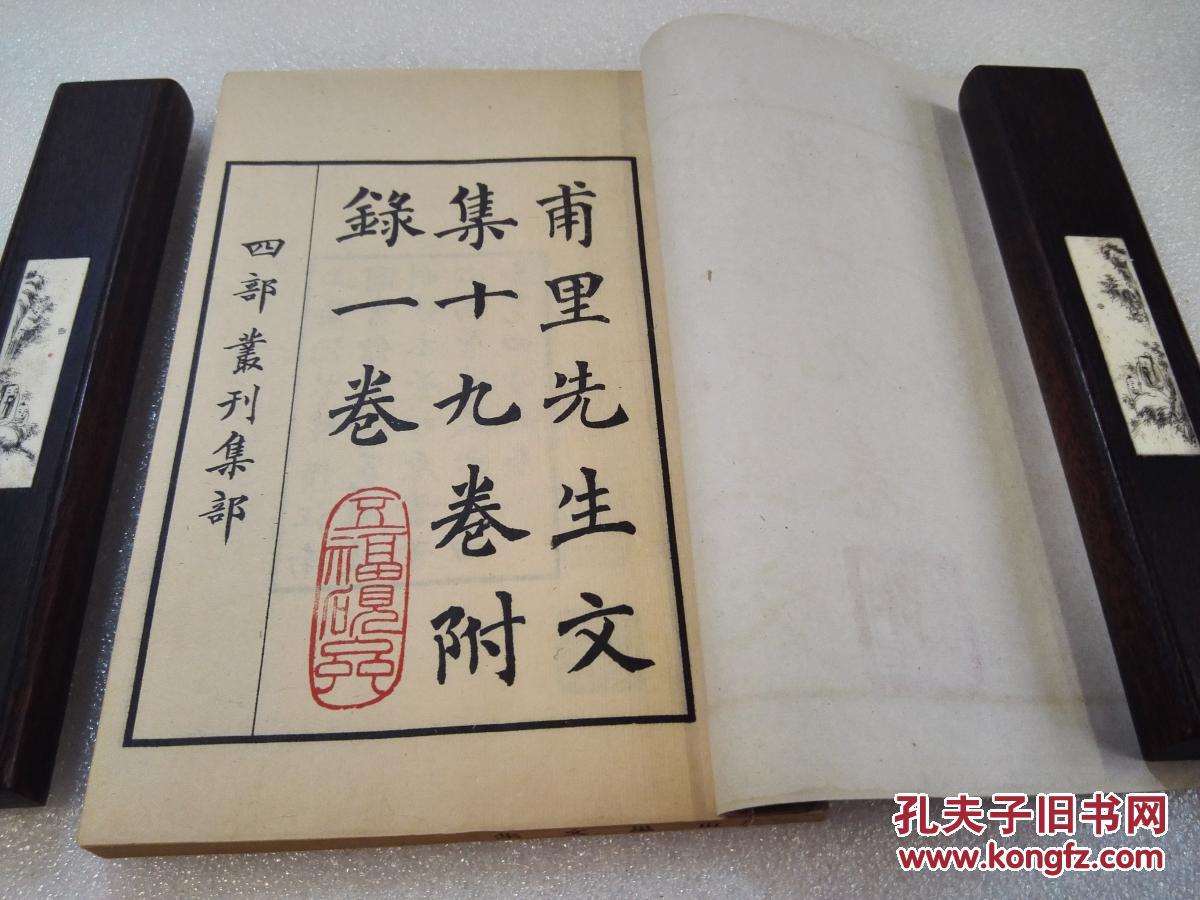 甫里先生文
集十九卷附
錄一卷
四部叢刊集部
孔夫子旧书网
www.kongfz.com